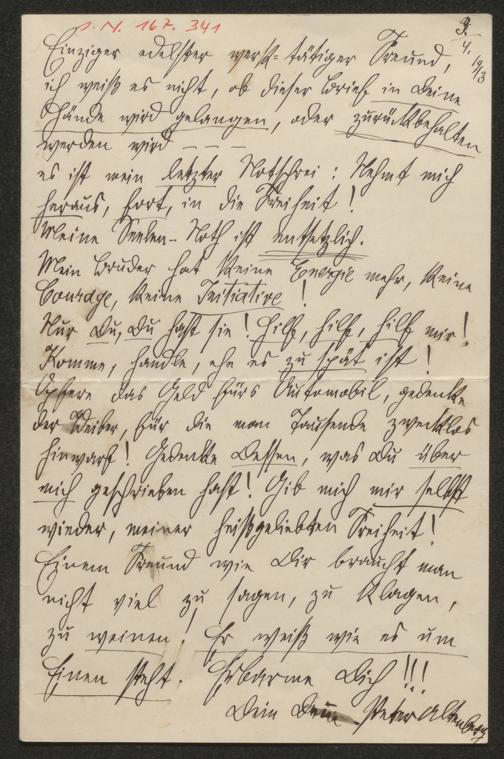 I. N. 167.341
3.
4. 1913
Einziger edelster werk-tätiger Freund,
ich weiß es nicht, ob dieser Brief in Deine
Hände wird gelangen, oder zurückbehalten
werden wird – – –
es ist mein letzter Nothschrei: Nehmt mich
heraus, fort, in die Freiheit!
Meine Seelen-Noth ist entsetzlich.
Mein Bruder hat keine Energie mehr, keine
Courage, keine Initiative!
Nur Du, Du hast sie! Hilf, hilf, hilf mir!
Komme, handle, ehe es zu spät ist!
Opfere das Geld fürs Automobil, gedenke
der Weiber, für die man Tausende zwecklos
hinwarf! Gedenke Dessen, was Du über
mich geschrieben hast! Gib mich mir selbst
wieder, meiner heißgeliebten Freiheit!
Einem Freund wie Dir braucht man
nicht viel zu sagen, zu klagen,
zu weinen! Er weiß wie es um
Einen steht. Erbarme Dich!!!
Dein Peter Altenberg